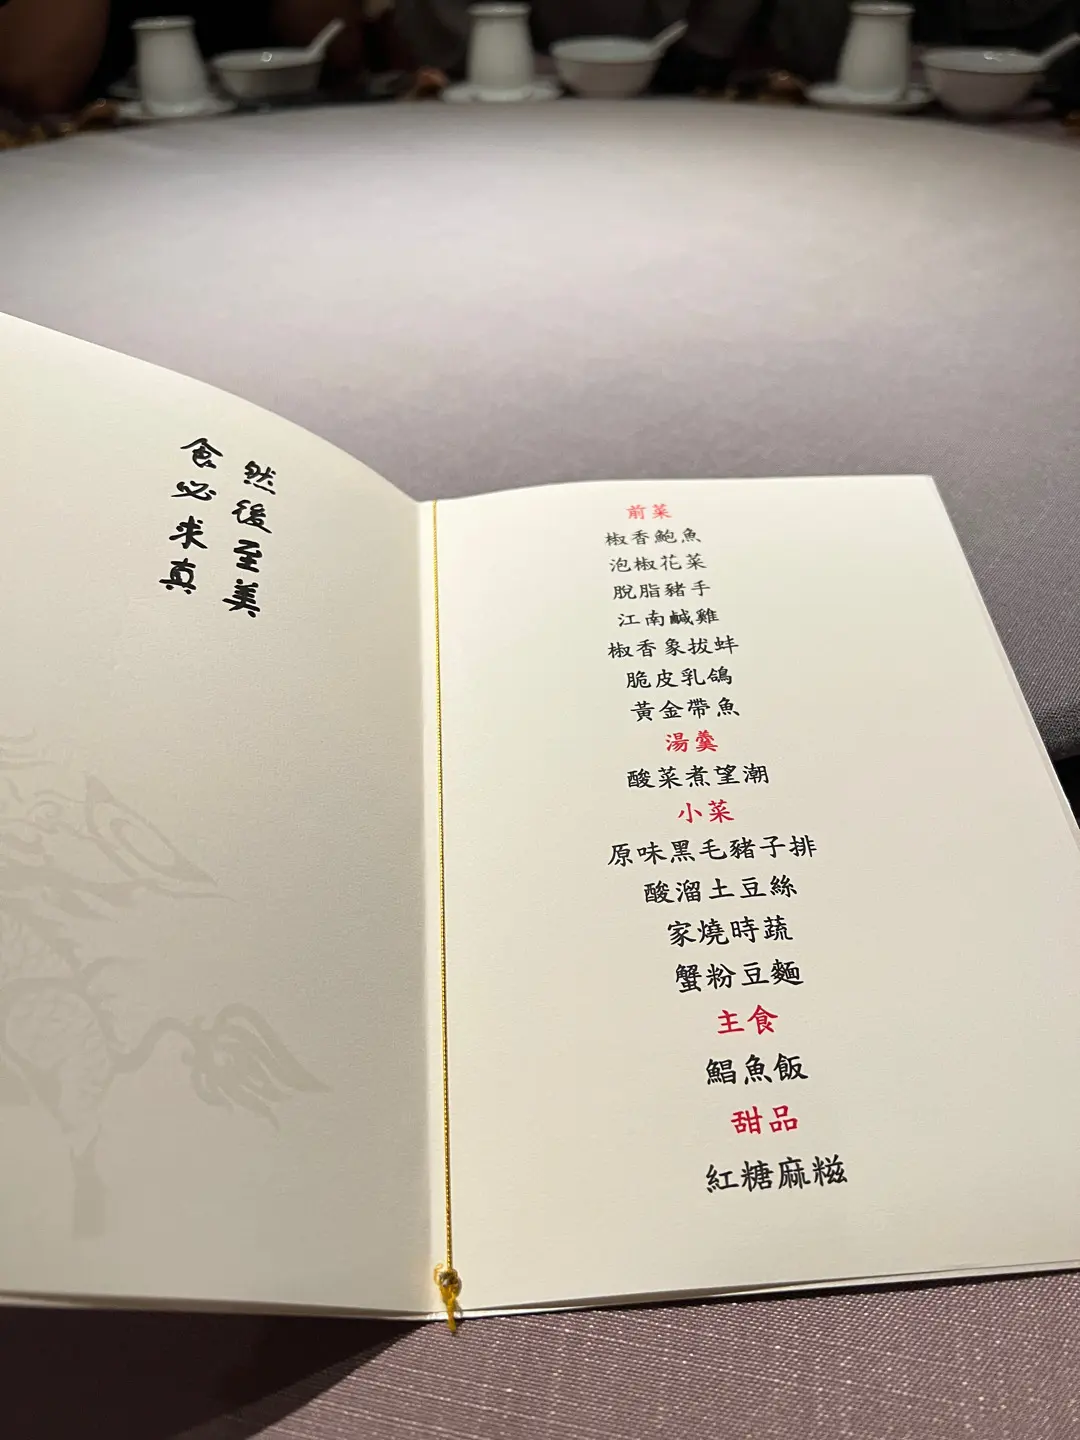 食必求真
然後至美
前菜
椒香鮑魚
泡椒花菜
脫脂豬手
江南鹹雞
椒香象拔蚌
脆皮乳鴿
黃金帶魚
湯羹
酸菜煮望潮
小菜
原味黑毛豬子排
酸溜土豆絲
家燒時蔬
蟹粉豆麵
主食
鯧魚飯
甜品
紅糖麻糍